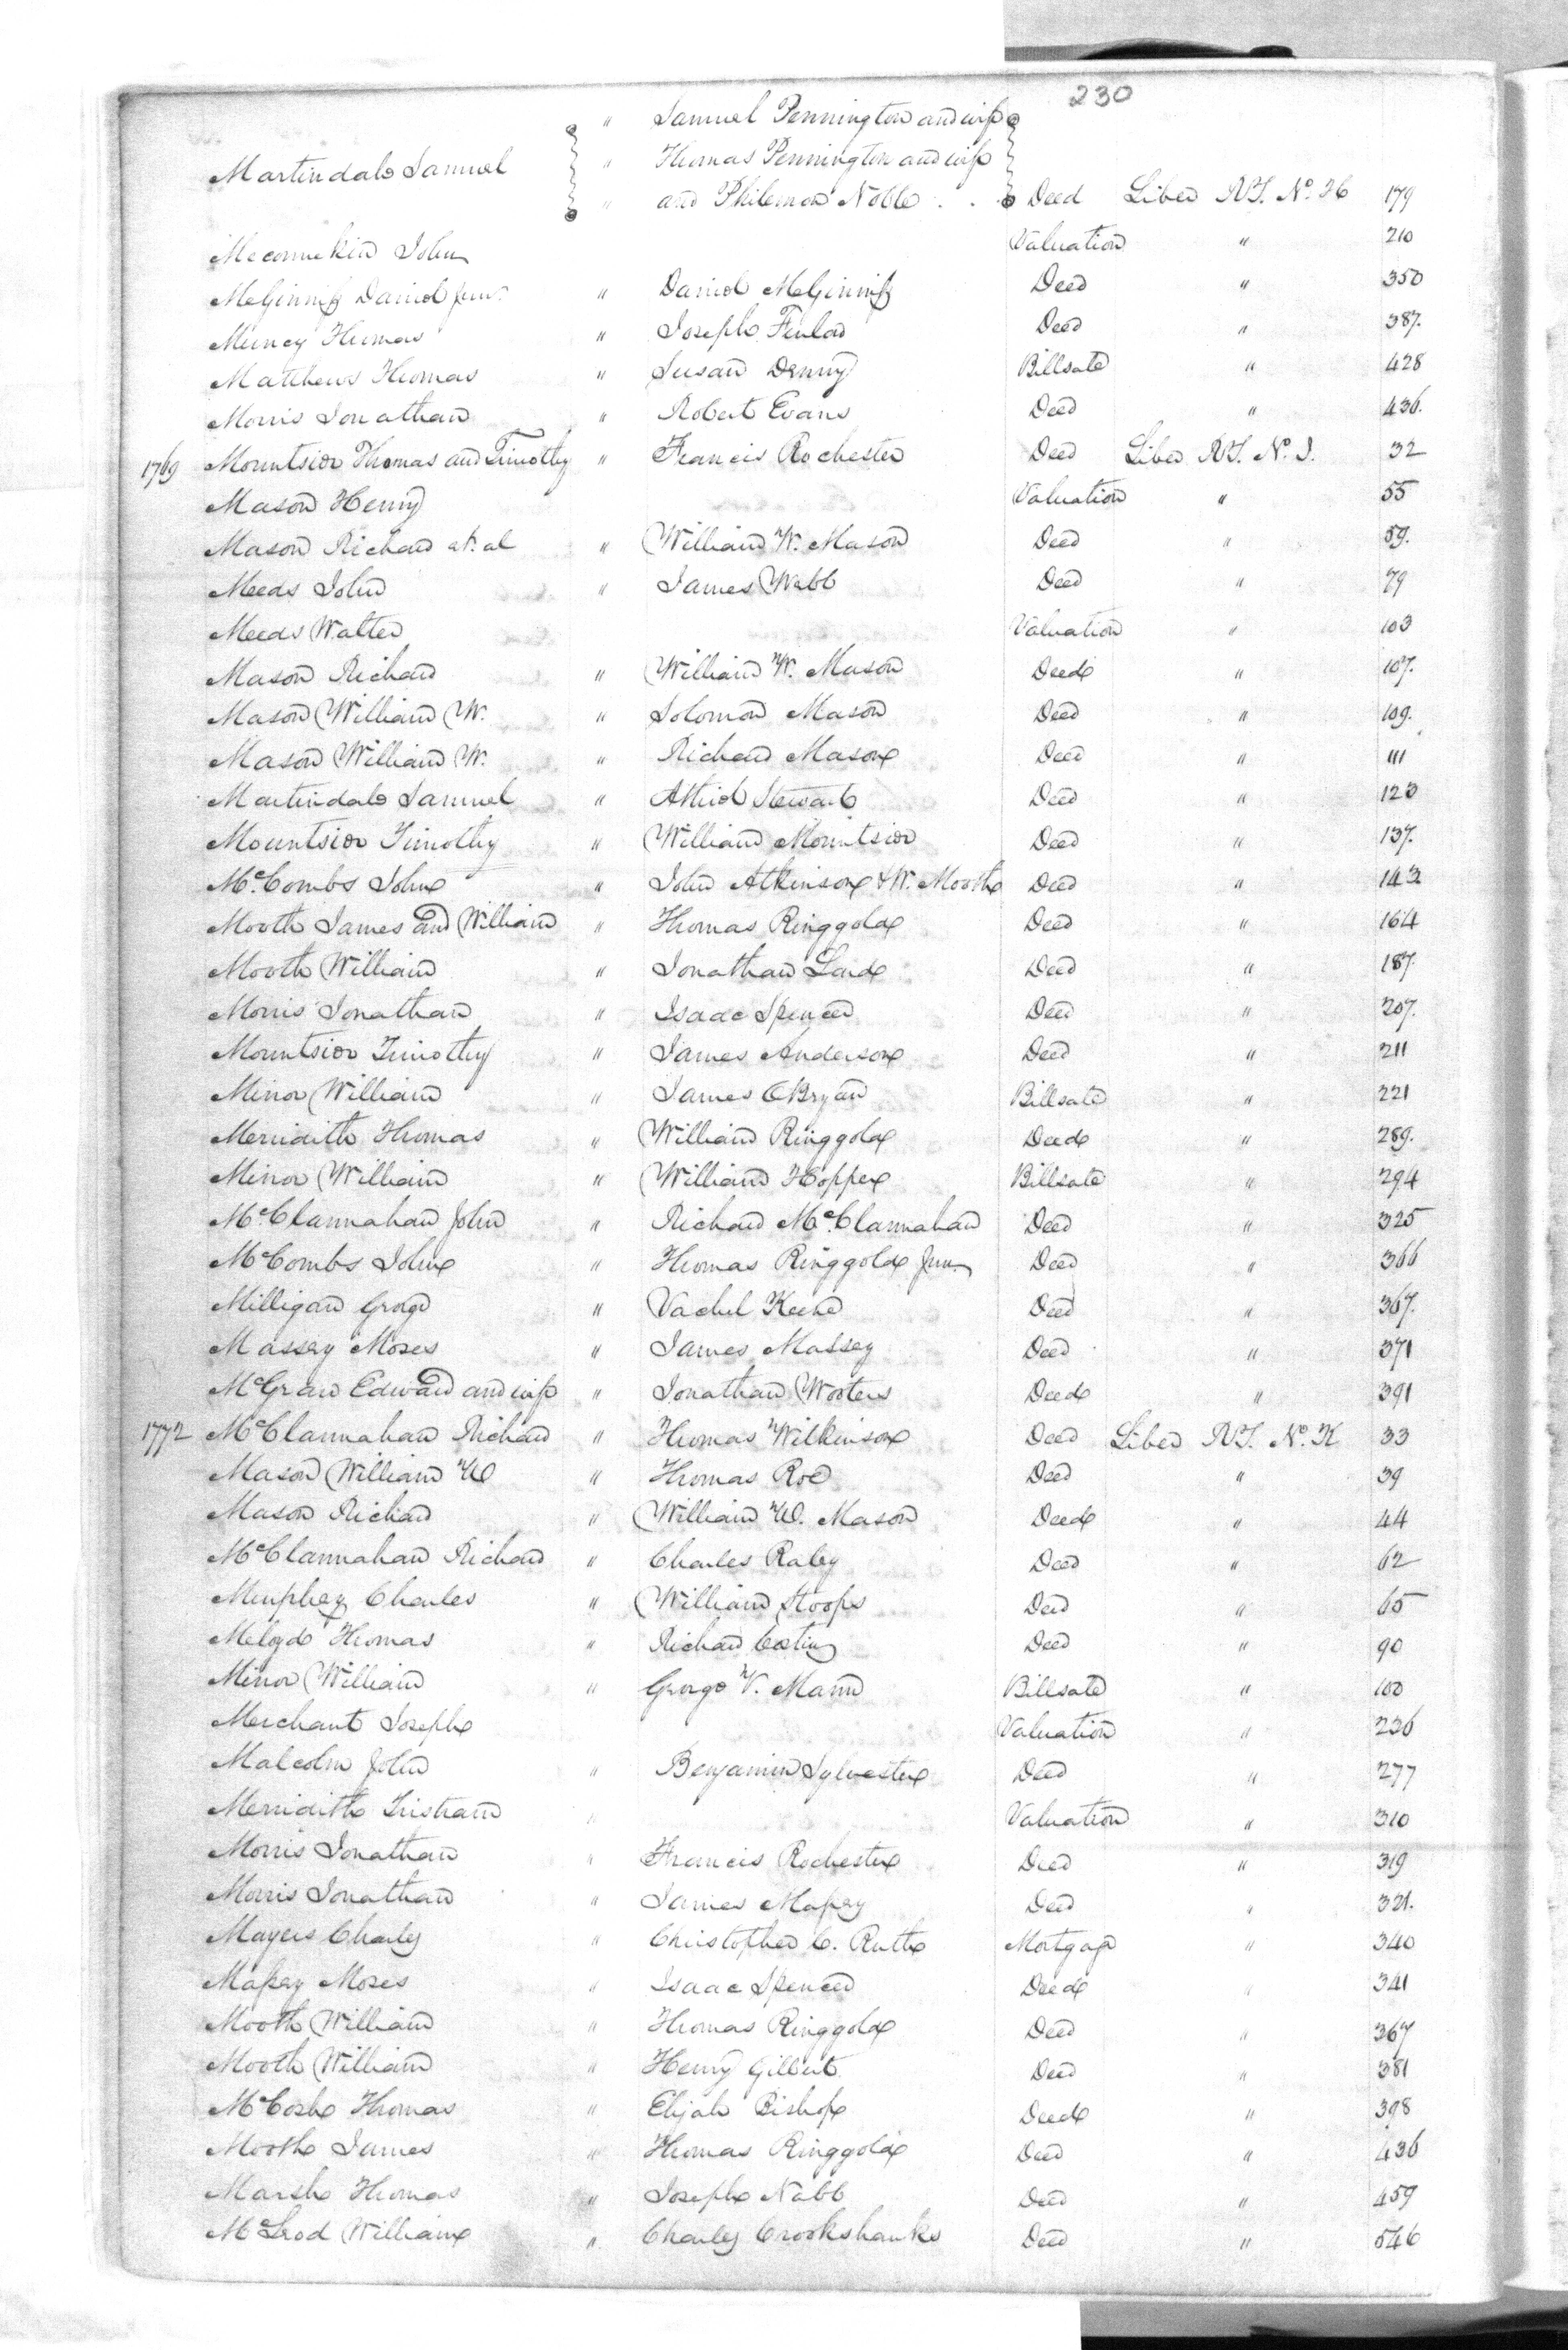 230
" Samuel Pennington and wife
Martindale Samuel " Thomas Pennington and wife
" and Philemon Noble . . Deed Liber RT. No. H 179
Meconnekin John Valuation " 210
McGinniss Daniel Junr. " Daniel McGinniss Deed " 350
Muncy Thomas " Joseph Deed " 387.
Matthews Thomas " Susan Denny Billsale " 428
Morris Jonathan " Robert Evans Deed " 436.
1769 Mountsier Thomas and Timothy " Francis Rochester Deed Liber RT. No. I. 32
Mason Henry Valuation " 55
Mason Richard et. al " William W. Mason Deed " 59.
Meeds John " James Webb Deed " 79
Meeds Walter Valuation " 103
Mason Richard " William W. Mason Deed " 107.
Mason William W. " Solomon Mason Deed " 109.
Mason William W. " Richard Mason Deed " 111
Martindale Samuel " Athiel Stewart Deed " 123
Mountsier Timothy " William Mountsier Deed " 137.
McCombs John " John Atkinson & W. Mooth Deed " 143
Mooth James and William " Thomas Ringgold Deed " 164
Mooth William " Jonathan Deed " 187.
Morris Jonathan " Isaac Spencer Deed " 207.
Mountsier Timothy " James Anderson Deed " 211
Minor William " James OBryan Billsale " 221
Merridith Thomas " William Ringgold Deed " 289.
Minor William " William Hopper Billsale " 294
McClannahan John " Richard McClannahan Deed " 325
McCombs John " Thomas Ringgold Jun. Deed " 366
Milligan George " Vachel Keene Deed " 367.
Massey Moses " James Massey Deed " 371
McGraw Edward and wife " Jonathan Wooters Deed " 391
1772 McClannahan Richard " Thomas Wilkinson Deed Liber RT. No. K 33
Mason William W " Thomas Roe Deed " 39
Mason Richard " William W. Mason Deed " 44
McClannahan Richard " Charles Raley Deed " 62
Murphey Charles " William Hoops Deed " 65
Meloyd Thomas " Richard Costin Deed " 90
Minor William " George V. Mann Billsale " 100
Merchant Joseph Valuation " 236
Malcolm John " Benjamin Sylvester Deed " 277
Merridith Tristram " Valuation " 310
Morris Jonathan " Francis Rochester Deed " 319
Morris Jonathan " James Massey Deed " 321.
Mayers Charles " Christopher C. Ruth Mortgage " 340
Massey Moses " Isaac Spencer Deed " 341
Mooth William " Thomas Ringgold Deed " 367
Mooth William " Henry Gilbert Deed " 381
McCosh Thomas " Elijah Bishop Deed " 398
Mooth James " Thomas Ringgold Deed " 436
Marsh Thomas " Joseph Nabb Deed " 459
McLeod William " Charles Crookshanks Deed " 546